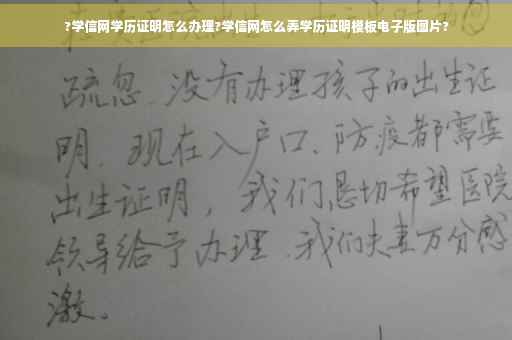 ?学信网学历证明怎么办理?学信网怎么弄学历证明模板电子版图片?
疏忽.没有办理孩子的出生证
明.现在入户口、防疫都需要
出生证明，我们恳切希望医院
领导给予办理.我们夫妻万分感
激。